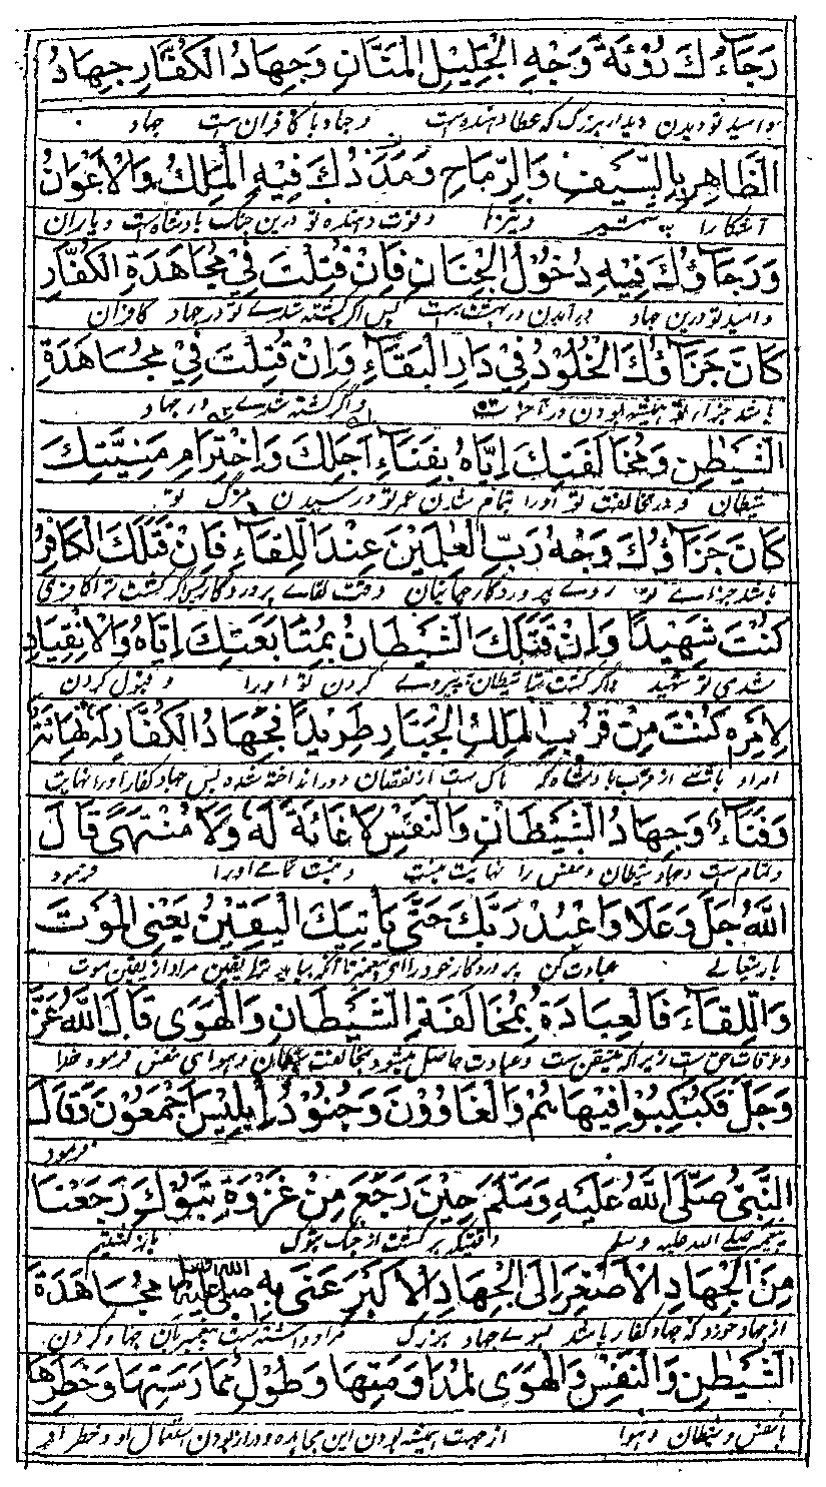 رَجَآءُكَ رُؤْيَةُ وَجْهِ الْجَلِيْلِ الْمَنَّانِ وَجِهَادُ الْكُفَّارِ جِهَادُ
و امید تو دیدن دیدار بزرگ که عطا دهنده است و جهاد با کافران است جهاد
الظَّاهِرِ بِالسَّيْفِ وَالرِّمَاحِ وَمَدَدُكَ فِيْهِ الْمَلِكُ وَالْاَعْوَانُ
آشکارا به شمشیر و نیزها و قوت دهنده تو درین جنگ بادشاه است و یاران
وَرَجَآؤُكَ فِيْهِ دُخُوْلُ الْجِنَانِ فَاِنْ قُتِلْتَ فِيْ مُجَاهَدَةِ الْكُفَّارِ
و امید تو درین جهاد در آمدن در بهشت است پس اگر کشته شدے تو در جهاد کافران
كَانَ جَزَآؤُكَ الْخُلُوْدُ فِيْ دَارِ الْبَقَآءِ وَاِنْ قُتِلْتَ فِيْ مُجَاهَدَةِ
باشد جزاء تو همیشه بودن در آخرت و اگر کشته شدے در جهاد
الشَّيْطٰنِ وَمُخَالَفَتِكَ اِيَّاهُ بِفَنَآءِ اَجَلِكَ وَاخْتِرَامِ مَنِيَّتِكَ
شیطان و در مخالفت تو او را بتمام شدن عمر تو و رسیدن مرگ تو
كَانَ جَزَآؤُكَ وَجْهُ رَبِّ الْعٰلَمِيْنَ عِنْدَ اللِّقَآءِ فَاِنْ قَتَلَكَ الْكَافِرُ
باشد جزاے تو روے پروردگار جهانیان وقت لقاے پروردگار پس اگر کشت ترا کافرے
كُنْتَ شَهِيْدًا وَاِنْ قَتَلَكَ الشَّيْطَانُ بِمُتَابَعَتِكَ اِيَّاهُ وَالْاِنْقِيَادِ
شدی تو شهید و اگر کشت ترا شیطان به پیروے کردن تو او را و قبول کردن
لِاَمْرِهٖ كُنْتَ مِنْ قُرْبِ الْمَلِكِ الْجَبَّارِ طَرِيْدًا فَجِهَادُ الْكُفَّارِ لَهٗ نِهَايَةٌ
امر او باشے از قرب بادشاه که پاک ست از نقصان دور انداخته شده پس جهاد کفار او را نهایت
وَفَنَآءٌ وَجِهَادُ الشَّيْطَانِ وَالنَّفْسِ لَا غَايَةَ لَهٗ وَلَا مُنْتَهًى قَالَ
و تمام است و جهاد شیطان و نفس را نهایت نیست و نیست او را فرمود
اللّٰهُ جَلَّ وَعَلَا وَاعْبُدْ رَبَّكَ حَتّٰى يَأْتِيَكَ الْيَقِيْنُ يَعْنِى الْمَوْتَ
باریتعالے عبادت کن پروردگار خود را تا آنکه بیاید ترا یقین مراد از یقین موت
وَاللِّقَآءَ فَالْعِبَادَةُ بِمُخَالَفَةِ الشَّيْطَانِ وَالْهَوٰى قَالَ اللّٰهُ عَزَّ
و ملاقات حق ست زیرا که متیقن ست و عبادت حاصل میشود بمخالفت شیطان و هوای نفس فرموده خدا
وَجَلَّ فَكُبْكِبُوْا فِيْهَا هُمْ وَالْغَاوٗوْنَ وَجُنُوْدُ اِبْلِيْسَ اَجْمَعُوْنَ وَقَالَ
فرمود
النَّبِيُّ صَلَّى اللّٰهُ عَلَيْهِ وَسَلَّمَ حِيْنَ رَجَعَ مِنْ غَزْوَةِ تَبُوْكَ رَجَعْنَا
پیغمبر صلے الله علیه و سلم وقتیکه برگشت از جنگ تبوک باز گشتیم
مِنَ الْجِهَادِ الْاَصْغَرِ اِلَى الْجِهَادِ الْاَكْبَرِ عَنٰى بِهٖ صلى الله عليه وسلم مُجَاهَدَةَ
از جهاد خورد که جهاد کفار باشد بسوے جهاد بزرگ مراد داشته است پیغمبر بآن جهاد کردن
الشَّيْطٰنِ وَالنَّفْسِ وَالْهَوٰى لِمُدَاوَمَتِهَا وَطُوْلِ مُمَارَسَتِهَا وَخَطَرِهَا
بانفس و شیطان و هوا از جهت همیشه بودن این مجاهده و دراز بودن استعمال او و خطر او